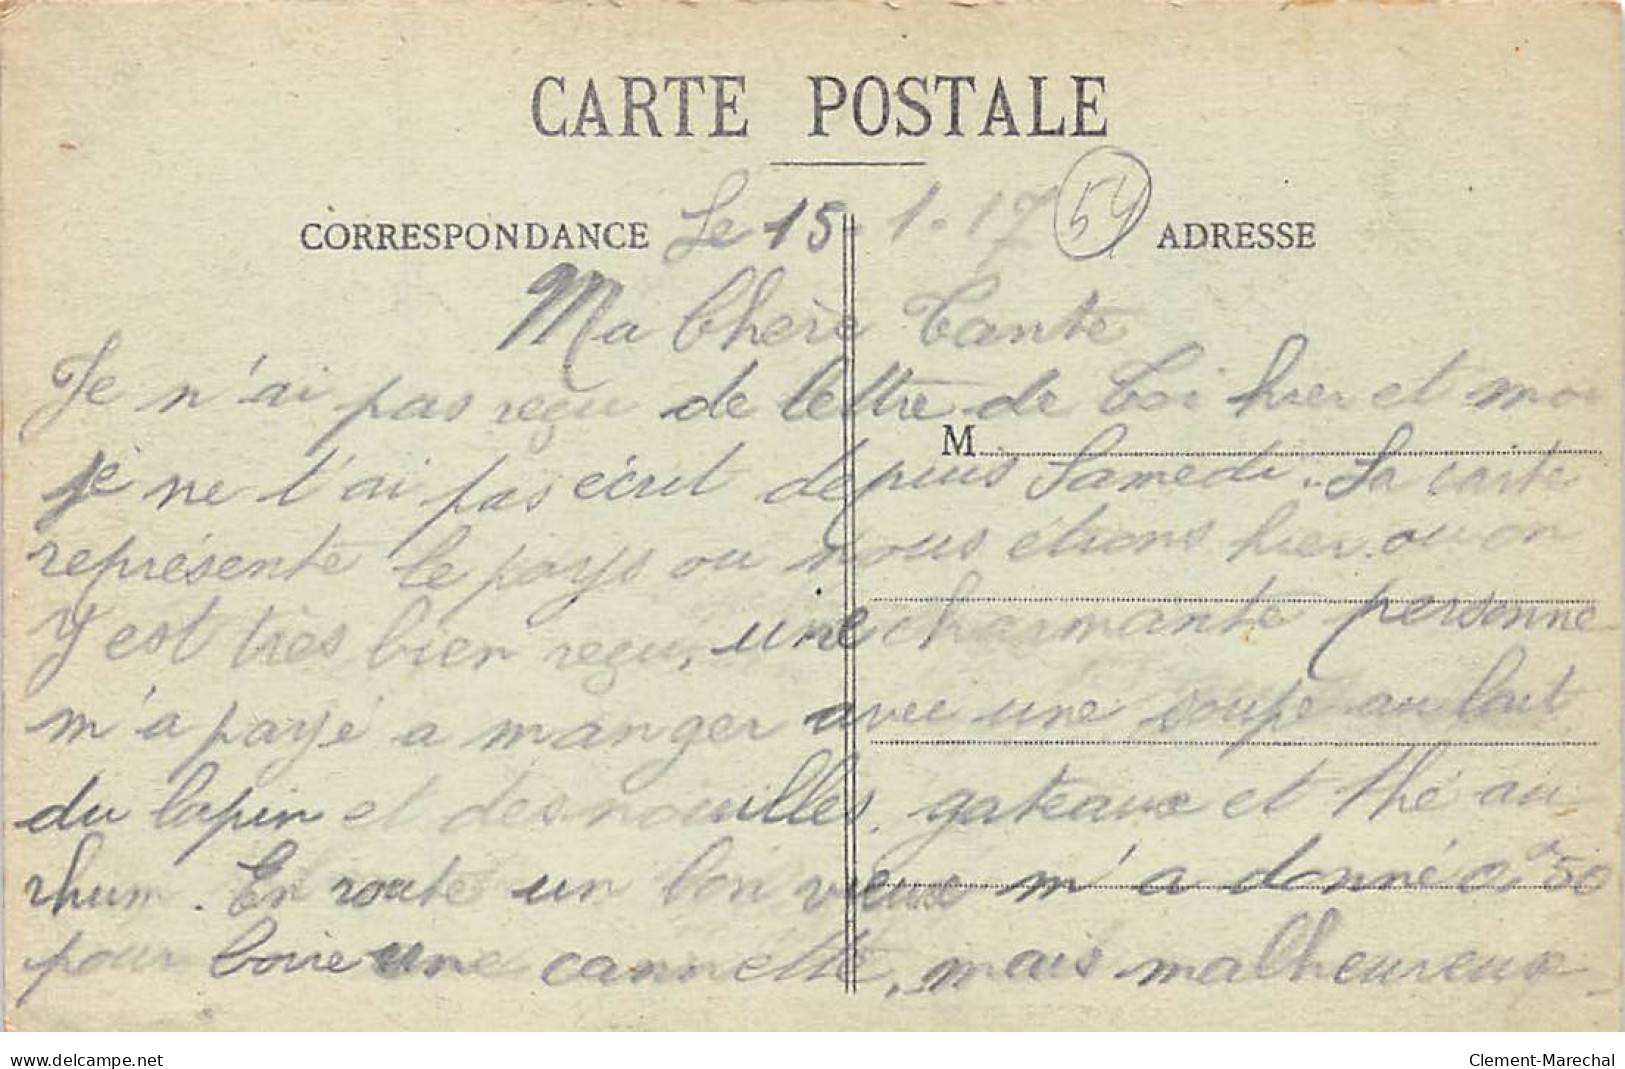 CARTE POSTALE
CORRESPONDANCE Le 15-1-17 54 ADRESSE
Ma Chère Tante
Je n'ai pas reçu de lettre de Toi hier et moi
M
je ne t'ai pas écrit depuis Samedi. La carte
représente le pays ou nous étions hier ou on
y est très bien reçu, une charmante personne
m'a payé a manger avec une soupe au lait
du lapin et des nouilles, gateaux et thé au
rhum. En route un bon vieux m'a donné 0,50
pour boire une cannette, mais malheureux-
www.delcampe.net
Clement-Marechal